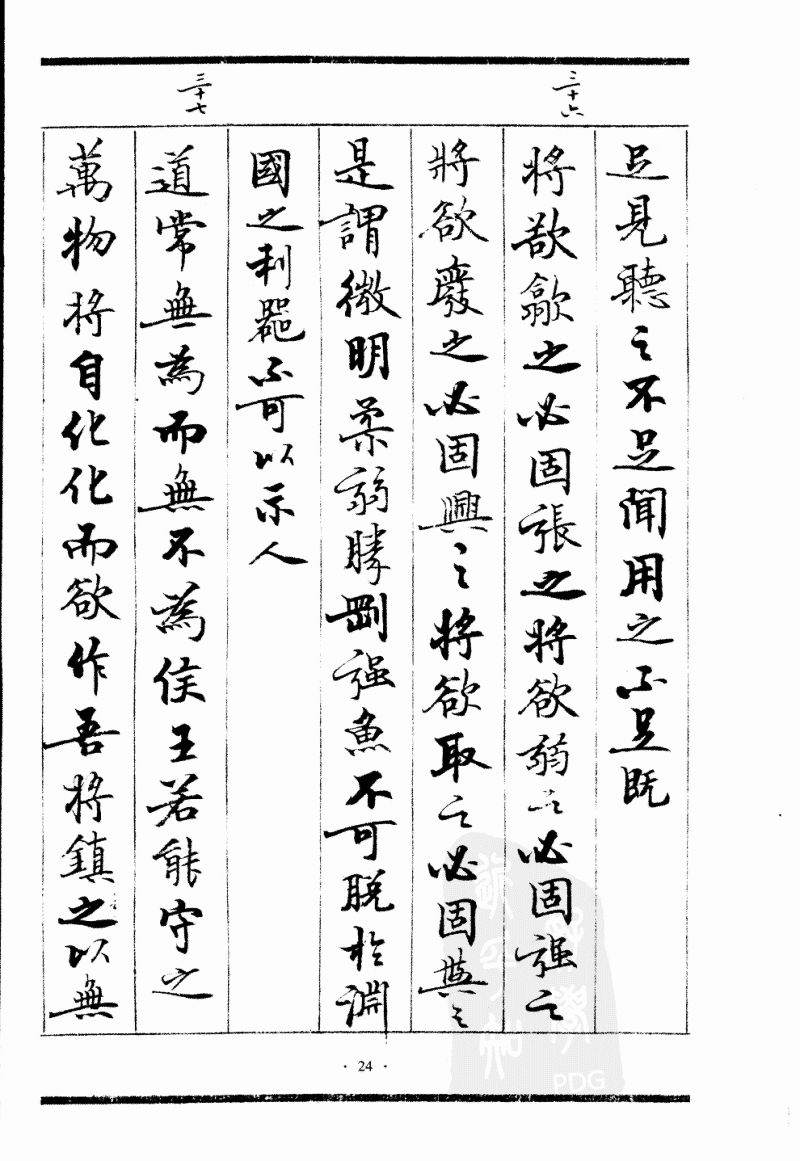 足見聽之不足聞用之不足既
三十六
將欲歙之必固張之將欲弱之必固強之
將欲廢之必固興之將欲取之必固與之
是謂微明柔弱勝剛強魚不可脫於淵
國之利器不可以示人
三十七
道常無為而無不為侯王若能守之
萬物將自化化而欲作吾將鎮之以無
· 24 ·
PDG